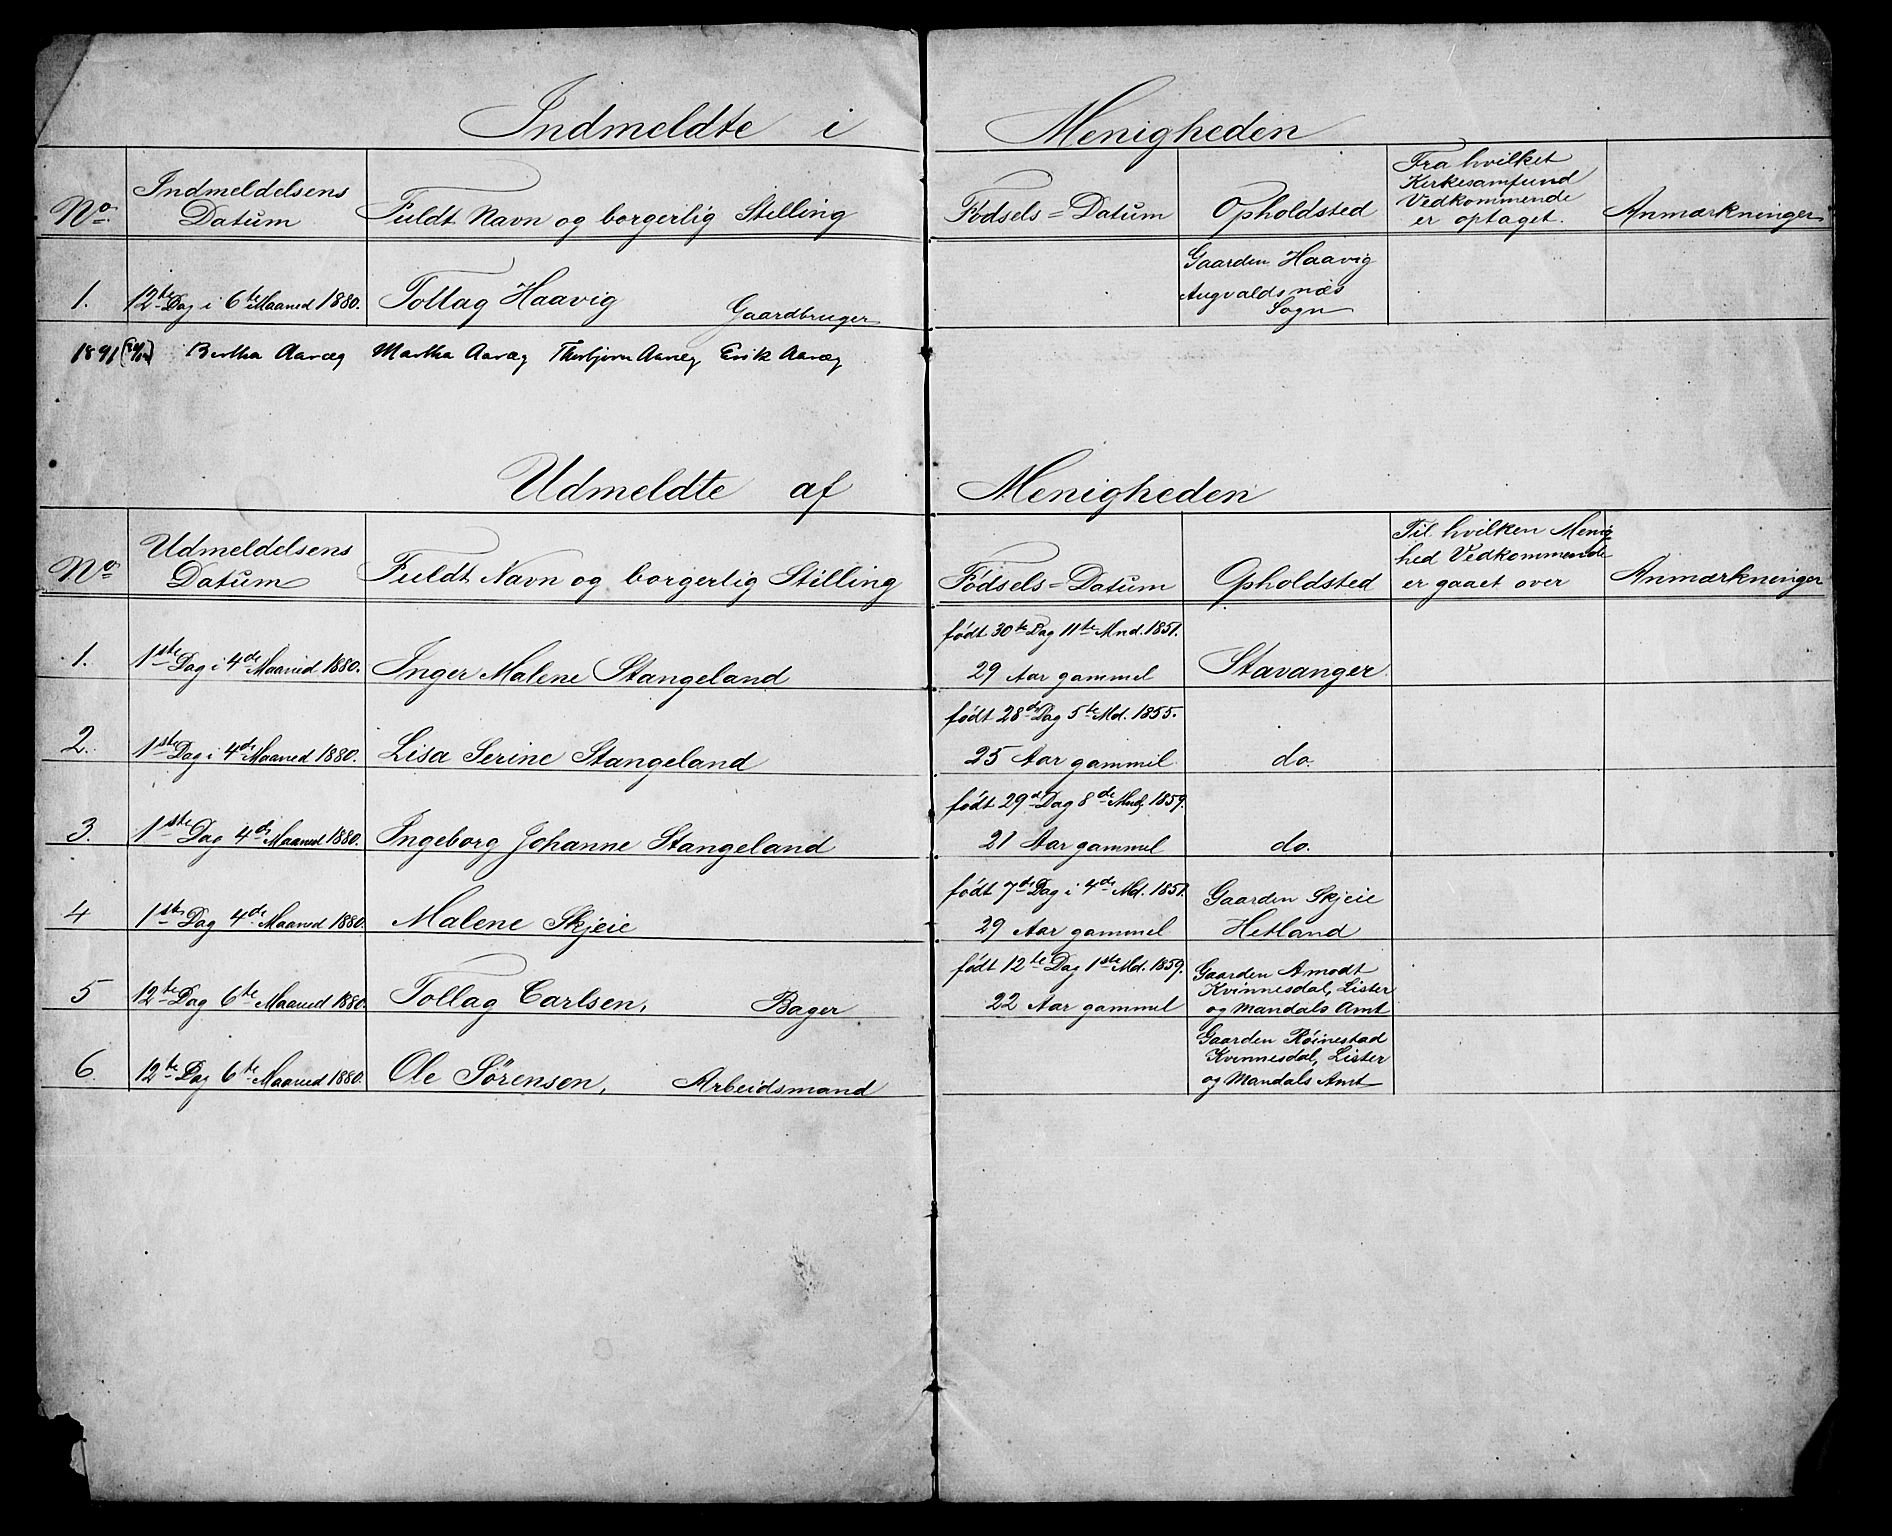 Indmeldte i Menigheden
No.
Indmeldelsens
Datum
Fuldt Navn og borgerlig Stilling
Fødsels=Datum
Opholdsted
Fra hvilket
Kirkesamfund
Vedkommende
er optaget.
Anmærkninger
1. 12te Dag i 6te Maaned 1880. Tollag Haavig Gaardbruger
Gaarden Haavig
Augvaldsnæs
Sogn
1891 Bertha Aaræg Martha Aaræg Thorbjørn Aaræg Erik Aaræg
Udmeldte af Menigheden
No.
Udmeldelsens
Datum
Fuldt Navn og borgerlig Stilling
Fødsels=Datum
Opholdsted
Til hvilken Menig-
hed Vedkommende
er gaaet over
Anmærkninger
født 30te Dag 11te Mnd. 1851.
1. 1ste Dag i 4de Maaned 1880. Inger Malene Stangeland 29 Aar gammel Stavanger
født 28de Dag 5te Md. 1855.
2. 1ste Dag i 4de Maaned 1880. Lisa Serine Stangeland 25 Aar gammel do.
født 29d Dag 8de Mnd, 1859.
3. 1ste Dag 4de Maaned 1880. Ingeborg Johanne Stangeland 21 Aar gammel do.
født 7de Dag i 4de Md. 1851. Gaarden Skjeie
4 1ste Dag 4de Maaned 1880. Malene Skjeie 29 Aar gammel Hetland
født 12te Dag 1ste Md. 1859. Gaarden Amodt
Kvinnesdal, Lister
5 12te Dag 6te Maaned 1880. Tollag Carlsen, Bager 22 Aar gammel og Mandals Amt
Gaarden Røinestad
Kvinnesdal, Lister
6. 12te Dag 6te Maaned 1880. Ole Sörensen, Arbeidsmand og Mandals Amt